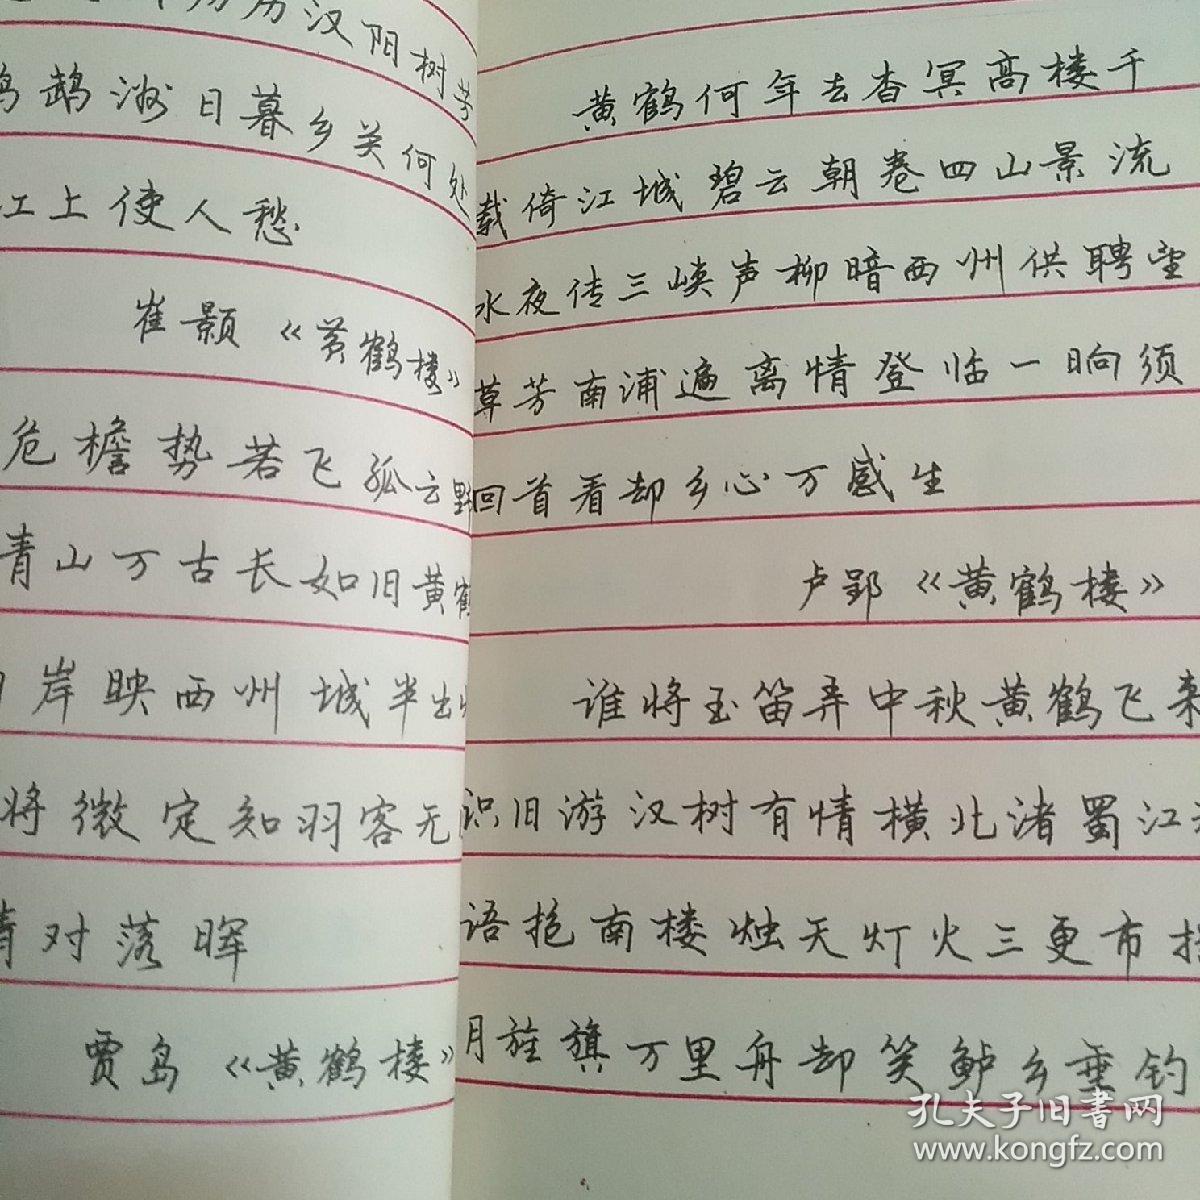 历历汉阳树芳
鹉洲日暮乡关何处
江上使人愁
崔颢《黄鹤楼》
危檐势若飞孤云野
青山万古长如旧黄鹤
岸映西州城半出
将微定知羽客无
情对落晖
贾岛《黄鹤楼》
黄鹤何年去杳冥高楼千
载倚江城碧云朝卷四山景流
水夜传三峡声柳暗西州供聘望
草芳南浦遍离情登临一晌须
回首看却乡心万感生
卢郢《黄鹤楼》
谁将玉笛弄中秋黄鹤飞来
识旧游汉树有情横北渚蜀江
语抱南楼烛天灯火三更市
月旌旗万里舟却笑鲈乡垂钓
孔夫子旧书网
www.kongfz.com